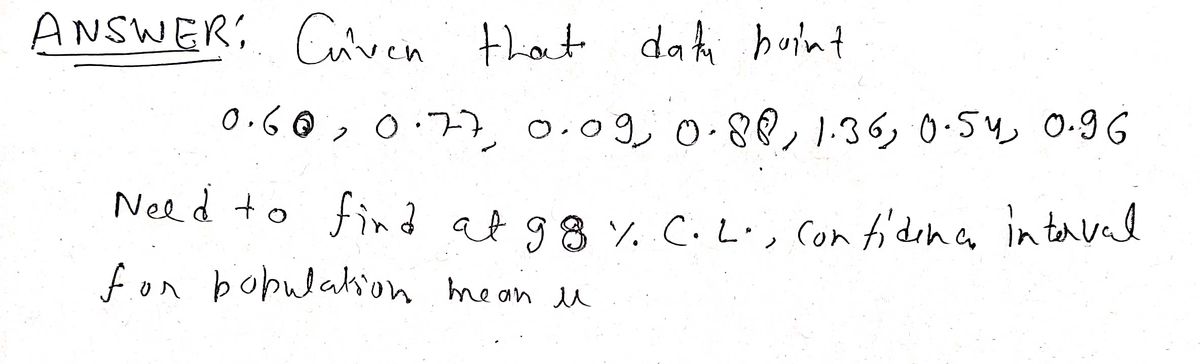 ANSWER: Given that data point
0.60, 0.77, 0.09, 0.88, 1.36, 0.54, 0.96
Need to find at 98 % C.L., confidence interval
for population mean u